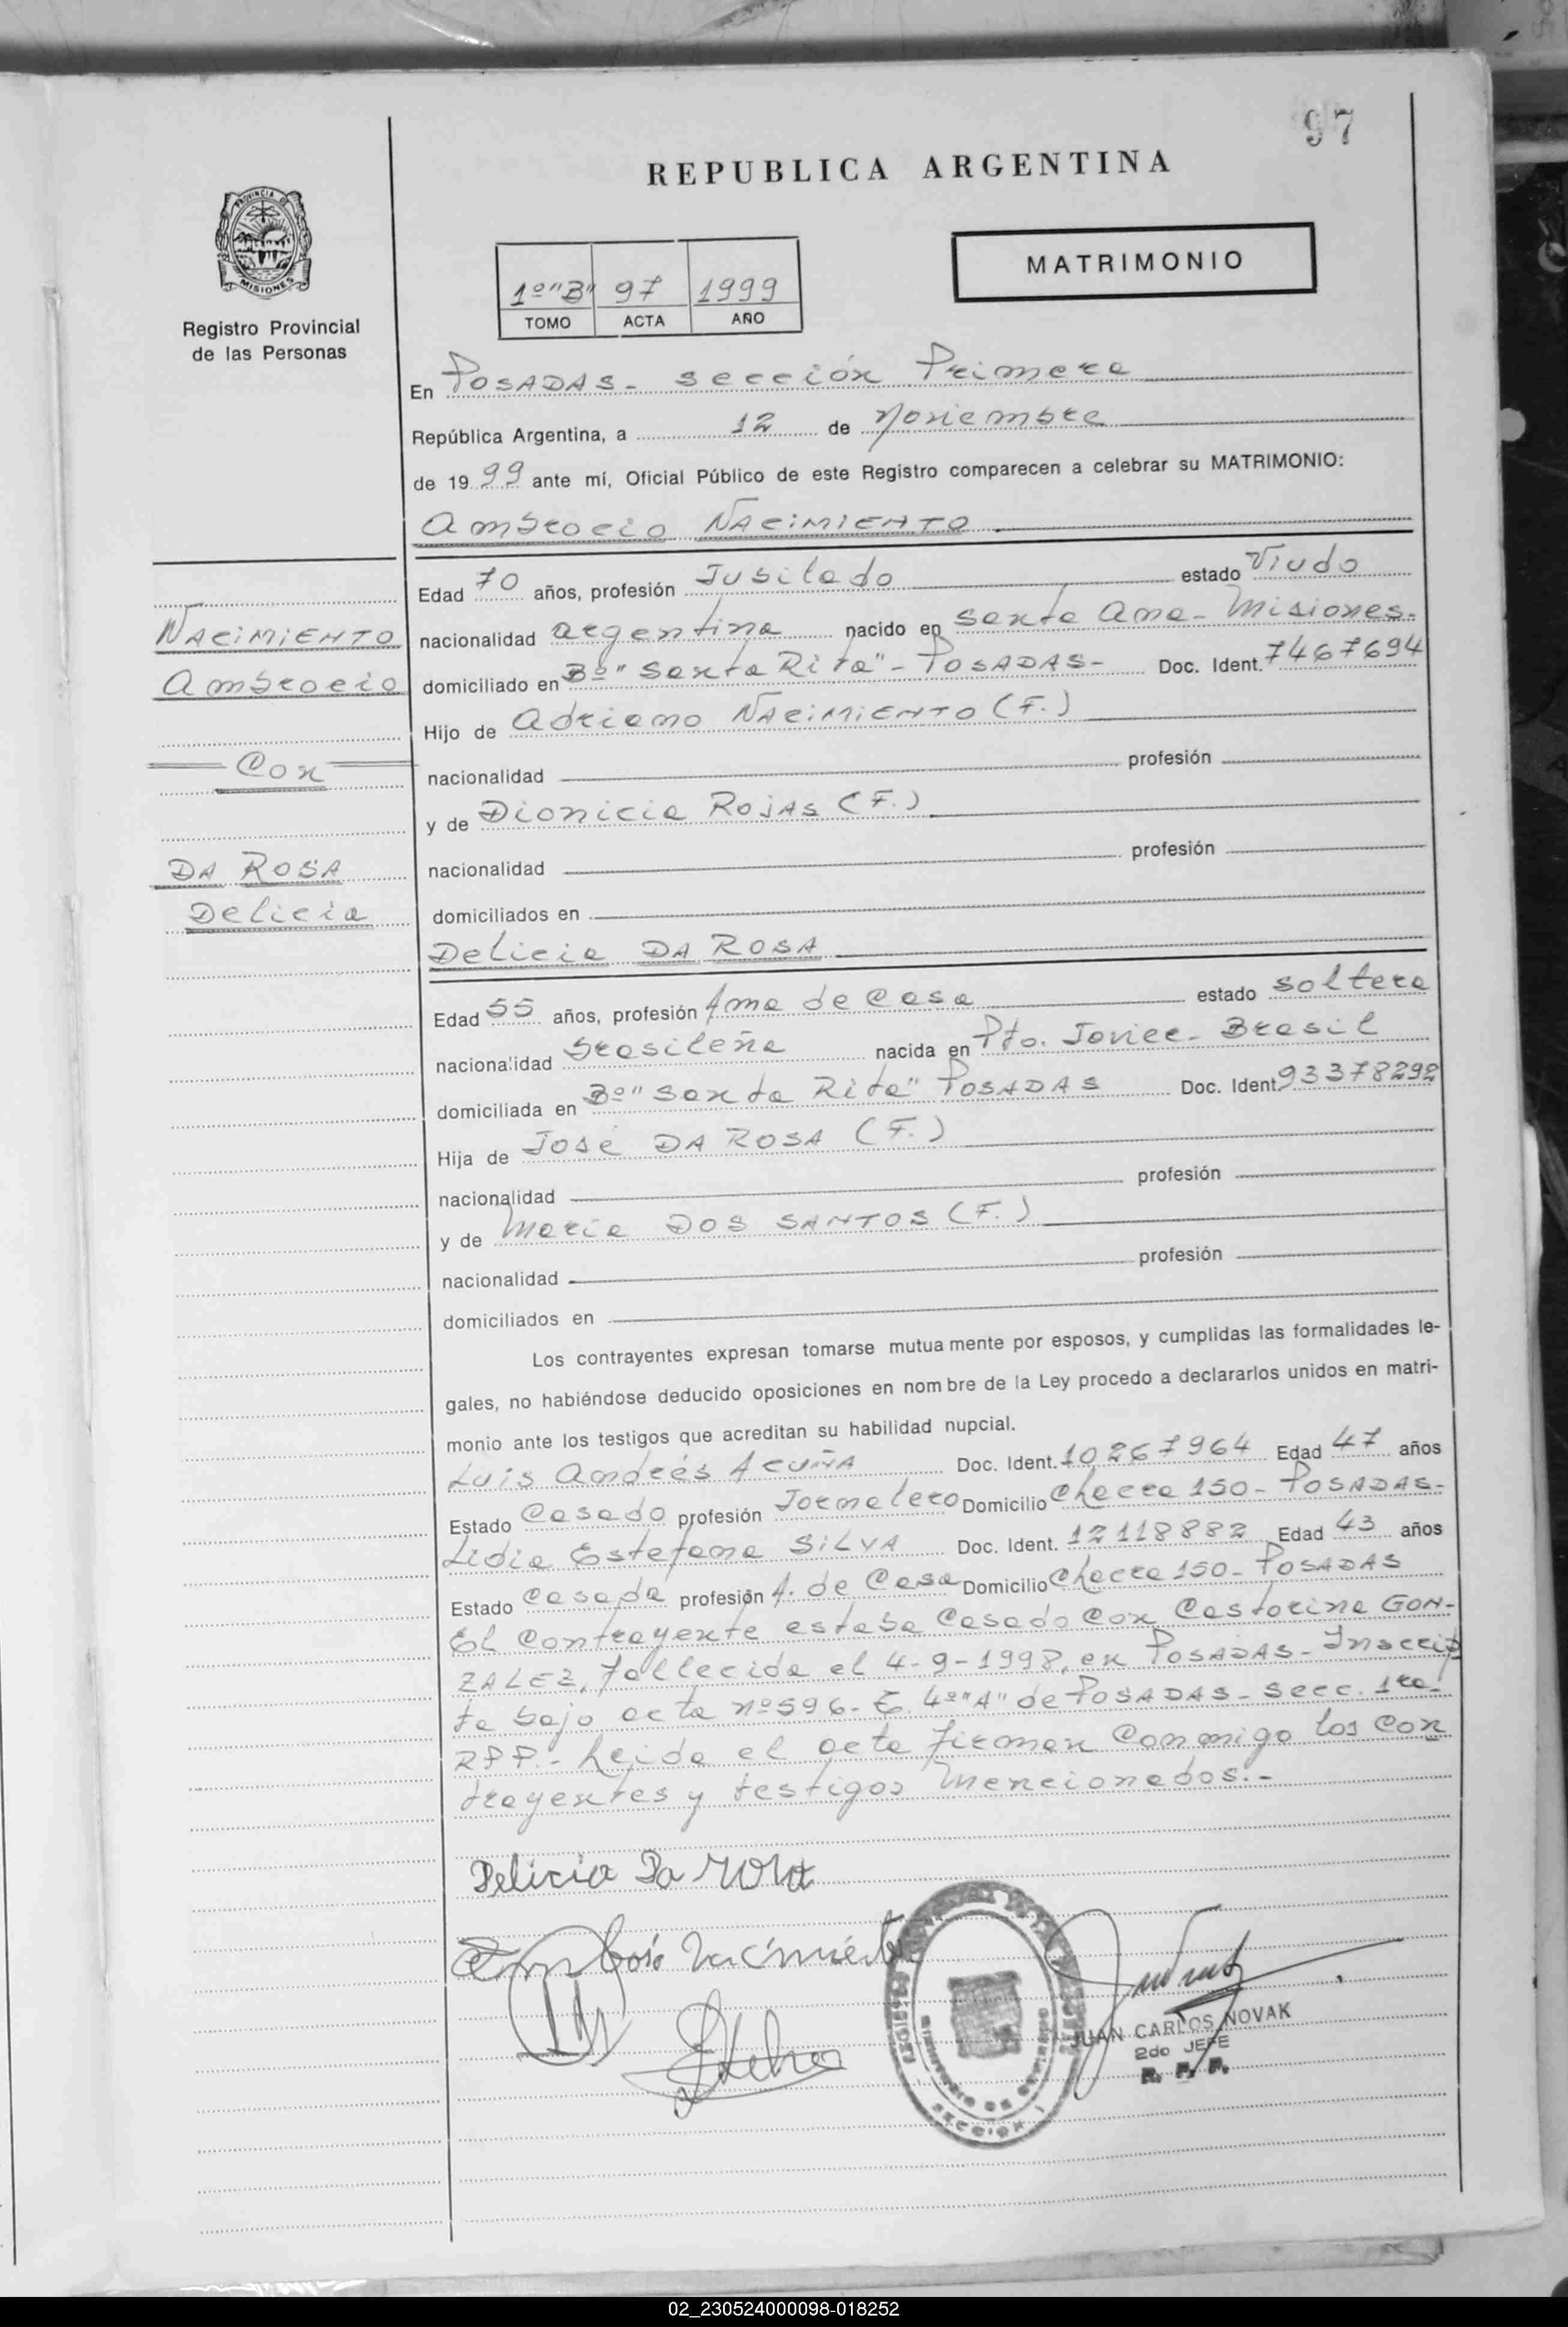 97
REPUBLICA ARGENTINA
PROVINCIA DE
MISIONES
Registro Provincial
de las Personas
1º"B" 97 1999
TOMO ACTA AÑO
MATRIMONIO
En POSADAS- sección Primera
República Argentina, a 12 de Noviembre
de 1999 ante mí, Oficial Público de este Registro comparecen a celebrar su MATRIMONIO:
Ambrocio NACIMIENTO
Edad 70 años, profesión Jubilado estado Viudo
NACIMIENTO
nacionalidad argentina nacido en Santa Ana- Misiones.
Ambrocio
domiciliado en Bº "Santa Rita"- POSADAS- Doc. Ident. 7467694
Hijo de Adriano NACIMIENTO (F.)
Con
nacionalidad profesión
y de Dionicia ROJAS (F.)
DA ROSA
nacionalidad profesión
Delicia
domiciliados en
Delicia DA ROSA
Edad 55 años, profesión Ama de Casa estado soltera
nacionalidad brasileña nacida en Pto. Javier- Brasil
domiciliada en Bº "Santa Rita" POSADAS Doc. Ident. 93378292
Hija de José DA ROSA (F.)
nacionalidad profesión
y de María DOS SANTOS (F.)
nacionalidad profesión
domiciliados en
Los contrayentes expresan tomarse mutuamente por esposos, y cumplidas las formalidades le-
gales, no habiéndose deducido oposiciones en nombre de la Ley procedo a declararlos unidos en matri-
monio ante los testigos que acreditan su habilidad nupcial.
Luis Andrés ACUÑA Doc. Ident. 10267964 Edad 47 años
Estado Casado profesión Jornalero Domicilio Chacra 150- POSADAS-
Lidia Estefana SILVA Doc. Ident. 12118882 Edad 43 años
Estado Casada profesión A. de Casa Domicilio Chacra 150- POSADAS
El Contrayente estaba Casado Con Castorina GON-
ZALEZ, fallecida el 4-9-1998, en POSADAS- Inscrip
ta bajo acta nº 596- T. 4º"A" de POSADAS- Secc. 1ra-
RPP.- Leída el acta firman Conmigo los Con
trayentes y testigos Mencionados.-
Delicia Da Rosa
Ambrosio Nacimiento
SECCION 1
JUAN CARLOS NOVAK
2do JEFE
R. P. P.
02_230524000098-018252